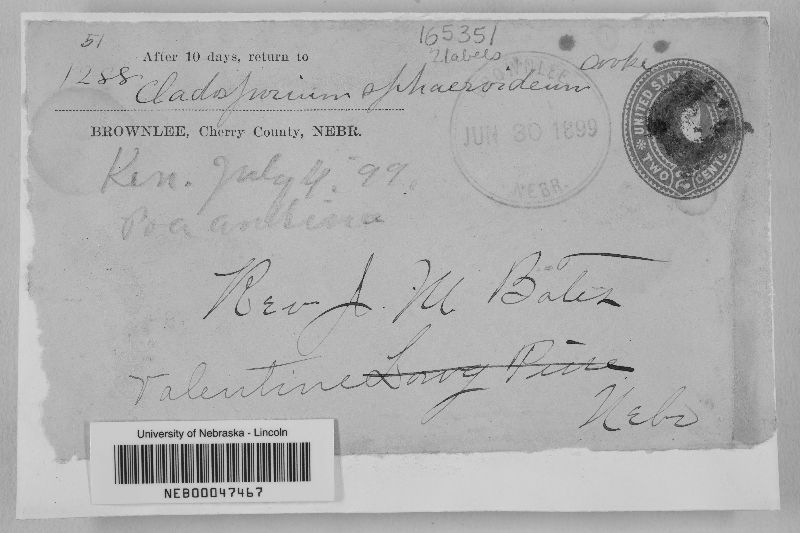 51
165351
2 labels
After 10 days, return to
1288 Cladosporium sphaeroideum Cooke
BROWNLEE, Cherry County, NEBR.
BROWNLEE
JUN 30 1899
NEBR.
UNITED STATES
TWO CENTS
2
July 4, 99.
Poa
Rev J. M. Bates
Valentine Long Pine
Nebr
University of Nebraska - Lincoln
NEB00047467